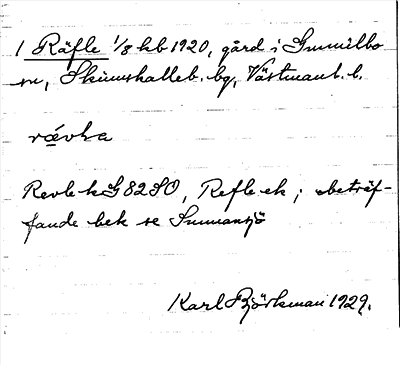 1 Räfle 1/8 kb 1920, gård i Gunnilbo
sn, Skinnskatteb. bg, Västmanl. l.
rævla
Revle k G 82 SO, Refle ek; beträf-
fande bek se Immansjö
Karl Björkman 1929.